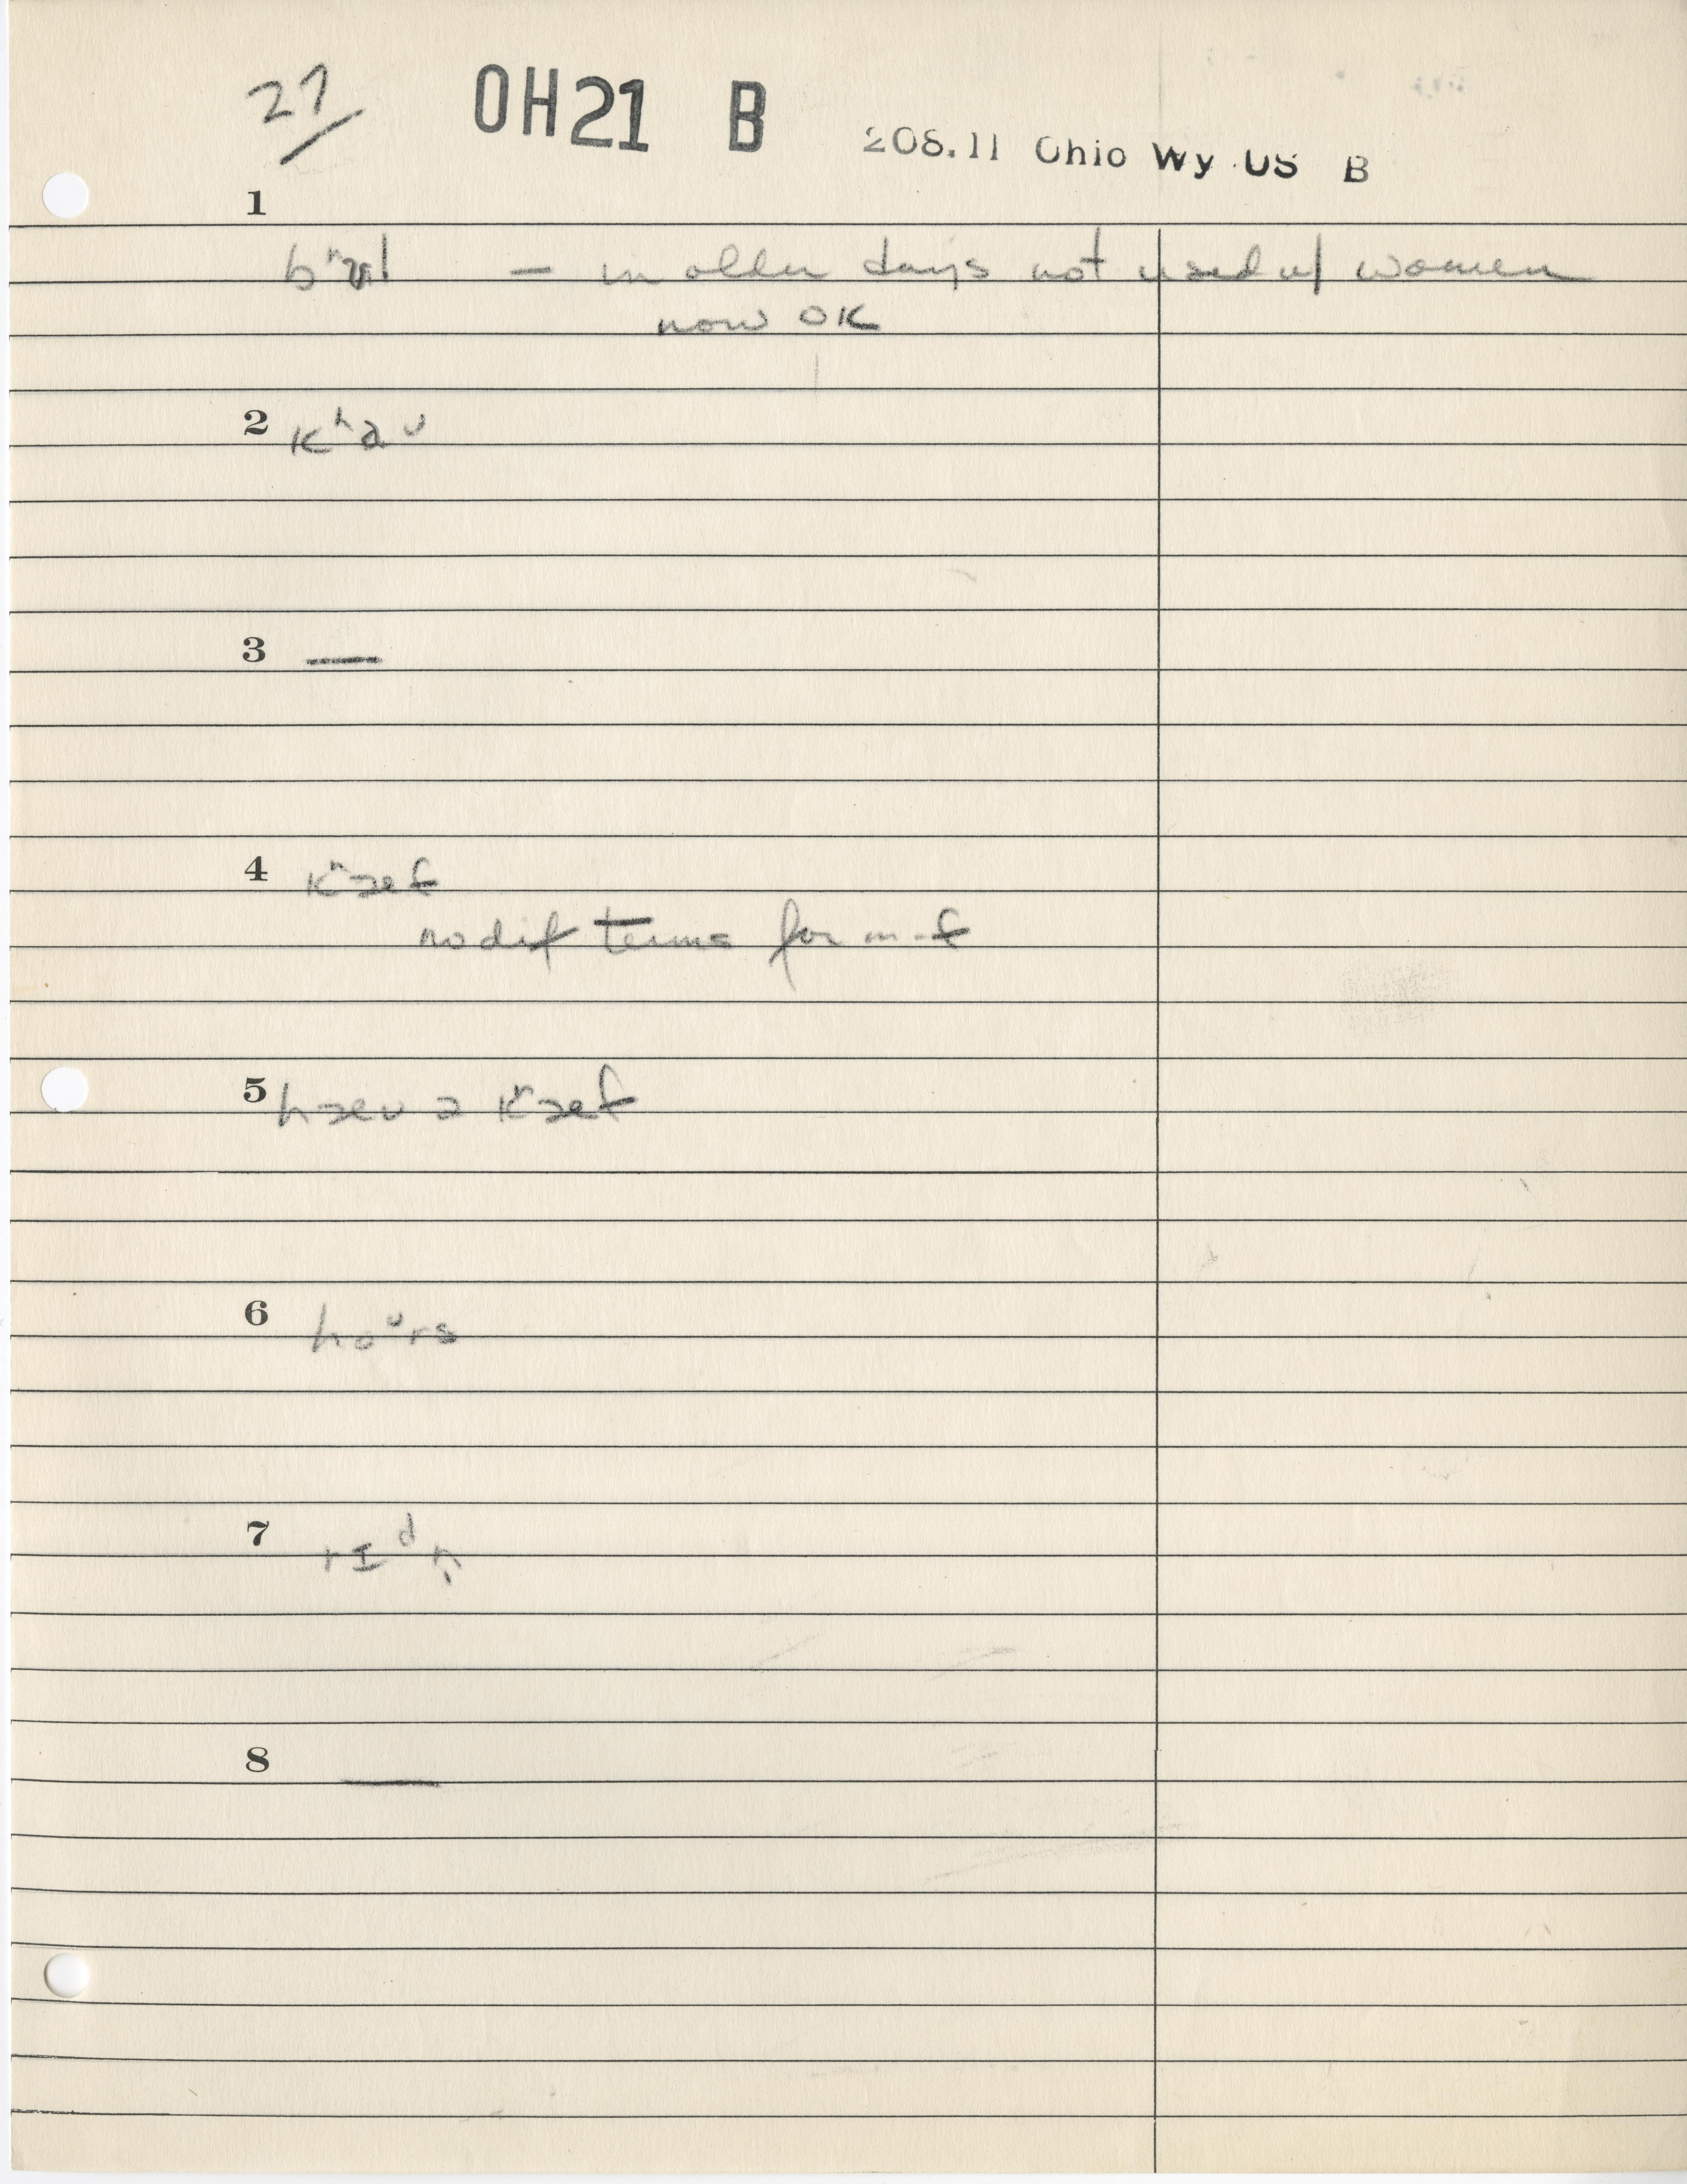 27/ OH21 B 208.11 Ohio Wy US B
1
— in older days not used w/ women
now OK
2 kʰaᴜ
3 —
4 kʰæf
no dif terms for m-f
5 hæv ə kʰæf
6 hoᵁrs
7 rɪᵈn̩
8 —